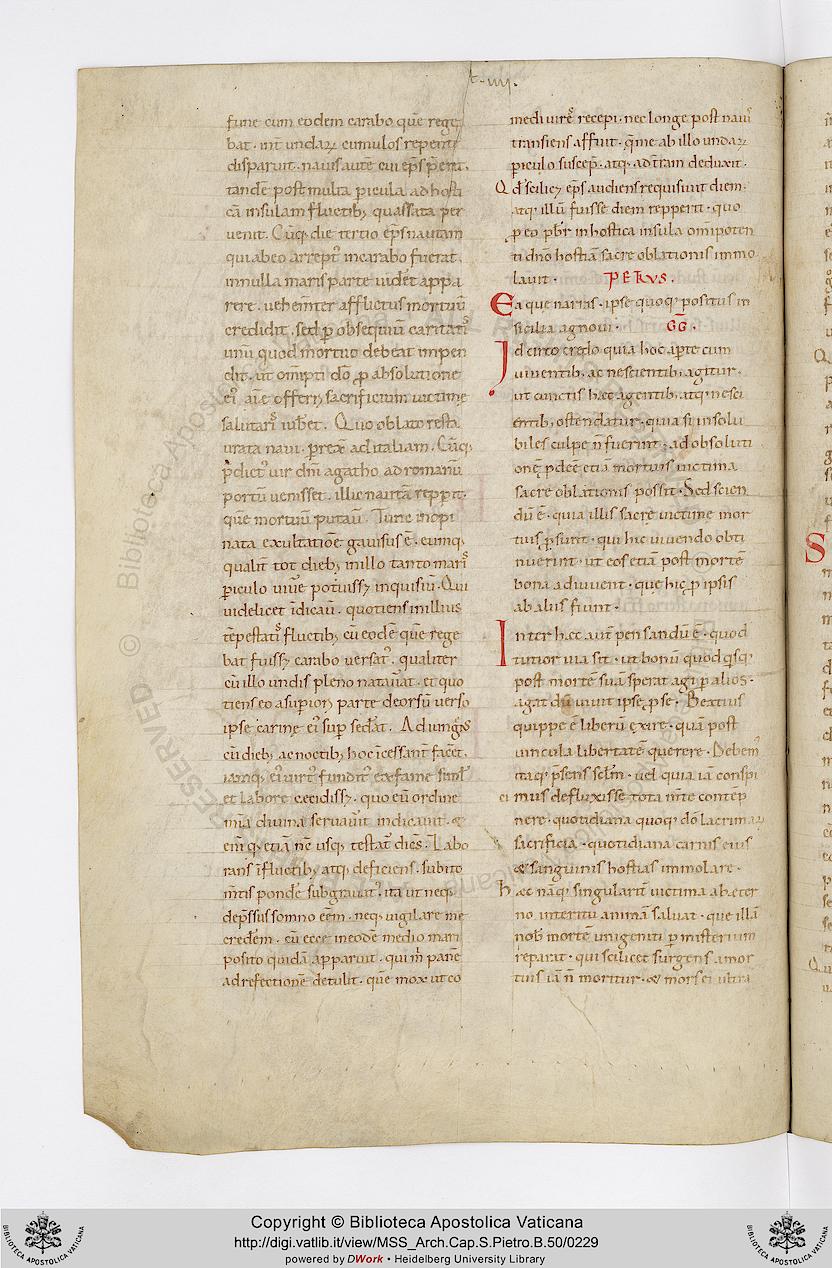 t. iiij.
fune cum eodem carabo quē rege
bat. int̄ undaꝝ cumulos repente
disparuit. nauis autē cui ep̄s p̄erat.
tandē post multa pericula ad hosti
cā insulam fluctibꝫ quassata per
uenit. Cūqꝫ die tertio ep̄s nautam
qui ab eo arrept᾽ in carabo fuerat.
in nulla maris parte uidēt appa
rere. uehemt̄er afflictus mortuū
credidit. sed ꝑ obsequiū caritatis
unū quod mortuo debeat inpen
dit. ut om̄ipti dō ꝓ absolutione
ei᾽ aīe offerrꝫ sacrificium uictime
salutaris iubet. Quo oblato resta
urata naui. prexᷓ ad italiam. Cūqꝫ
p̄dict᾽ uir dn̄i agatho ad romanū
portū uenisset. illic nautā repp̄it.
quē mortuū putaū. Tunc inopi
nata exultatiōe gauisus ē. eumqꝫ
qualit̄ tot diebꝫ in illo tanto maris
ꝑiculo uiuē potuissꝫ inquisiū. Qui
uidelicet īdicaū. quotiens in illius
tēpestatis fluctibꝫ cū eodē quē rege
bat fuissꝫ carabo uersat᾽. qualiter
cū illo undis pleno natauāt. et quo
tiens eo a suꝑiori parte deorsū uerso
ipse carine ei᾽ sup sedāt. Adiungēs
cū diebꝫ ac noctibꝫ hoc īcessant̄ facēt.
iamqꝫ ei᾽ uirt᾽ fundit᾽ ex fame simul
et labore cecidissꝫ. quo eū ordine
mīa diuina seruauit indicauit. &
em̄ qꝫ etiā nc̄ usqꝫ testat᾽ dicēs. Labo
rans ī fluctibꝫ atqꝫ deficiens. subito
mt̄is pondē subgrauat᾽. ita ut neqꝫ
dep̄ssus somno eēm. neqꝫ uigilare me
credem̄. cū ecce in eodē medio mari
posito quidā apparuit. qui m̄ panē
ad refectionē detulit. quē mox ut co
medi uirē recepi. nec longe post nauis
transiens affuit. q̄ me ab illo undaꝝ
ꝑiculo suscep̄. atqꝫ ad t̄ram deduxit.
Qd̄ sciliꝫ ep̄s audiens requisiuit diem.
atqꝫ illū fuisse diem repperit. quo
ꝓ eo pb̄r in hostica insula om̄ipoten
ti dn̄o hostiā sacre oblationis immo
lauit. PETRVS.
Ea que narras. ipse quoqꝫ positus in
sicilia agnoui. GḠ.
Idcirco credo quia hoc aꝑte cum
uiuentibꝫ ac nescientibꝫ agitur.
ut cunctis hæc agentibꝫ. atqꝫ nesci
entibꝫ ostendatur. quia si insolu
biles culpe n̄ fuerint. ad absoluti
onē pdēe etiā mortuis uictima
sacre oblationis possit. Sed scien
dū ē. quia illis sacre uictime mor
tuis ꝓsunt. qui hic uiuendo obti
nuerint. ut eos etiā post mortē
bona adiuuent. quę hic ꝓ ipsis
ab aliis fiunt.
Inter hæc aut̄ pensandū ē. quod
tutior uia sit. ut bonū quod qisqꝫ
post mortē suā sperat agi ꝑ alios.
agat dū uiuit ipse ꝓ se. Beatius
quippe ē liberū exire. quā post
uincula libertatē querere. Debem᾽
itaqꝫ p̄sens sclm̄. uel quia iā conspi
ci mus defluxisse tota mt̄e contēp
nere. quotidiana quoqꝫ dō lacrimaꝝ
sacrificia. quotidiana carnis eius
& sanguinis hostias immolare.
Hæc nāqꝫ singularit̄ uictima ab æter
no interitu animā saluat. que illā
nob̄ mortē unigeniti ꝑ misterium
reparat. qui scilicet surgens a mor
tuis iā n̄ moritur. & mors ei ultra
RESERVED © Biblioteca Apostolica Vaticana
Copyright © Biblioteca Apostolica Vaticana
http://digi.vatlib.it/view/MSS_Arch.Cap.S.Pietro.B.50/0229
powered by DWork • Heidelberg University Library
BIBLIOTECA APOSTOLICA VATICANA
BIBLIOTECA APOSTOLICA VATICANA